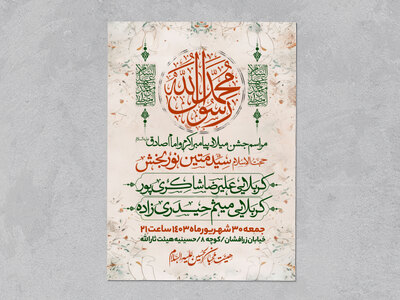 محمد رسول الله
مراسم جشن میلاد پیامبر اکرم و امام صادق
حجت الاسلام سید متین نوربخش
کربلایی علیرضا شاکری پور
کربلایی میثم حیدری زاده
جمعه ۳۰ شهریور ماه ۱۴۰۳ ساعت ۲۱
خیابان زرافشان / کوچه ۸ / حسینیه هیئت ثارالله